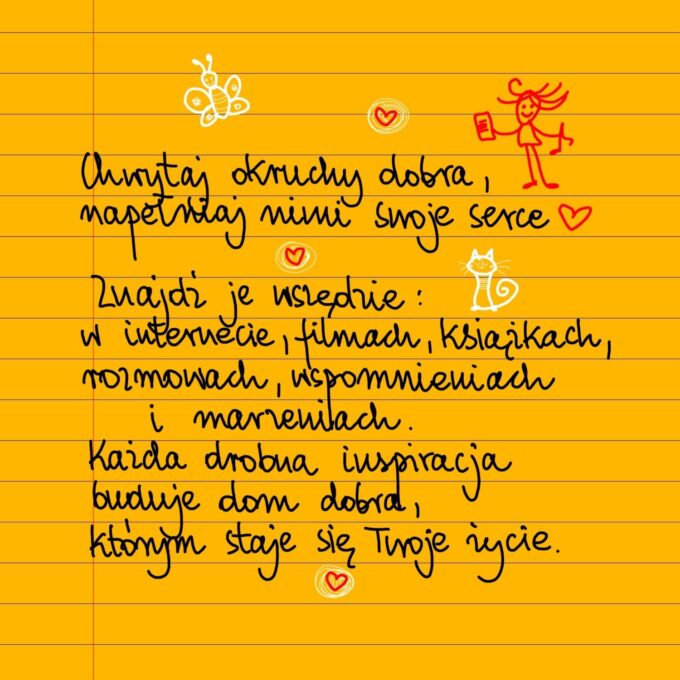 Chwytaj okruchy dobra,
napełniaj nimi swoje serce
Znajdź je wszędzie:
w internecie, filmach, książkach,
rozmowach, wspomnieniach
i marzeniach.
Każda drobna inspiracja
buduje dom dobra,
którym staje się Twoje życie.